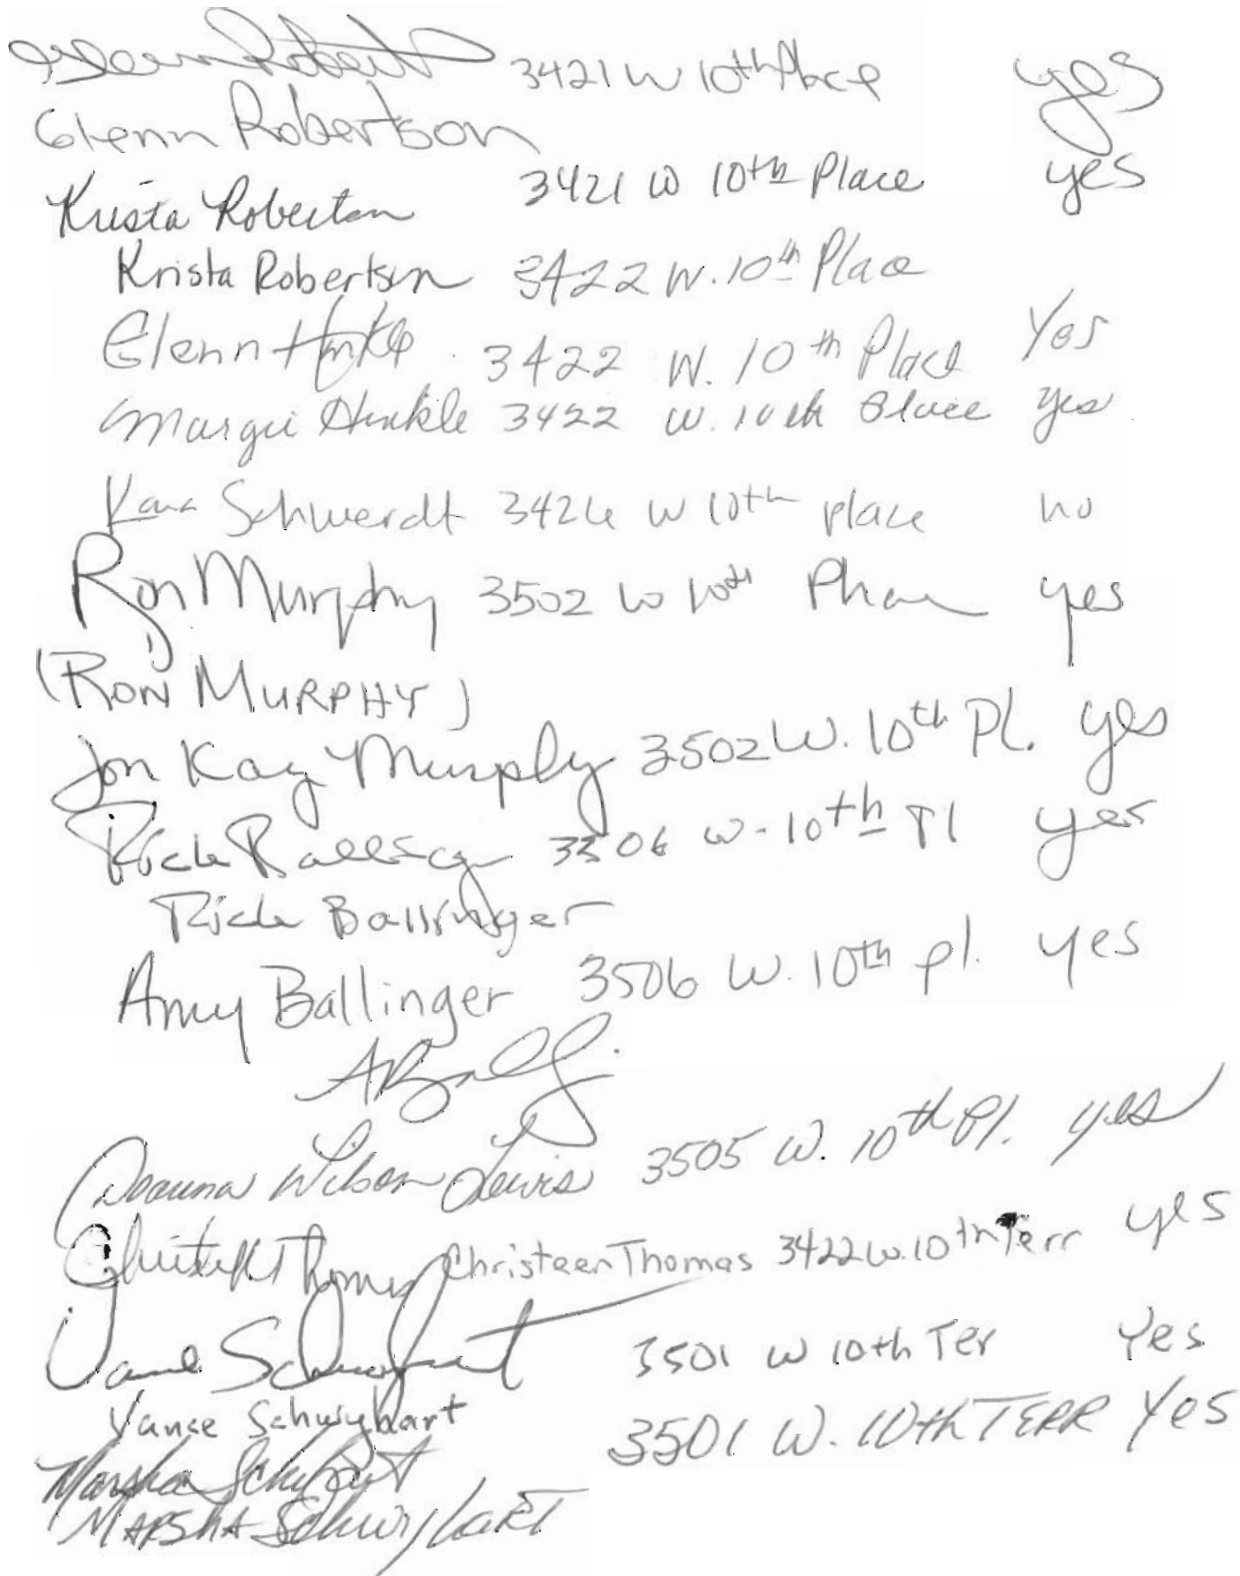 Glenn Robert 3421 W 10th Place yes
Glenn Robertson
Krista Robertson 3421 W 10th Place yes
Krista Robertson 3422 W. 10th Place
Glenn Hinkle 3422 W. 10th Place Yes
Margie Hinkle 3422 W. 10th Place yes
Kara Schwerdt 3426 W 10th place no
Ron Murphy 3502 W 10th yes
(RON MURPHY)
Jon Kay Murphy 3502 W. 10th Pl. yes
Rick Ballinger 3506 W. 10th Pl yes
Rick Ballinger
Amy Ballinger 3506 W. 10th pl. yes
Deanna Wilson Lewis 3505 W. 10th Pl. yes
Christeen Thomas Christeen Thomas 3422 W. 10th Terr yes
Vance Schwyhart 3501 W 10th Ter Yes
Vance Schwyhart
3501 W. 10th TERR Yes
Marsha Schwyhart
MARSHA Schwyhart